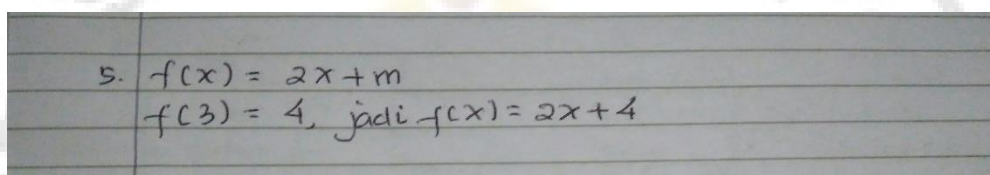 5. f(x) = 2x + m
f(3) = 4, jadi f(x) = 2x + 4